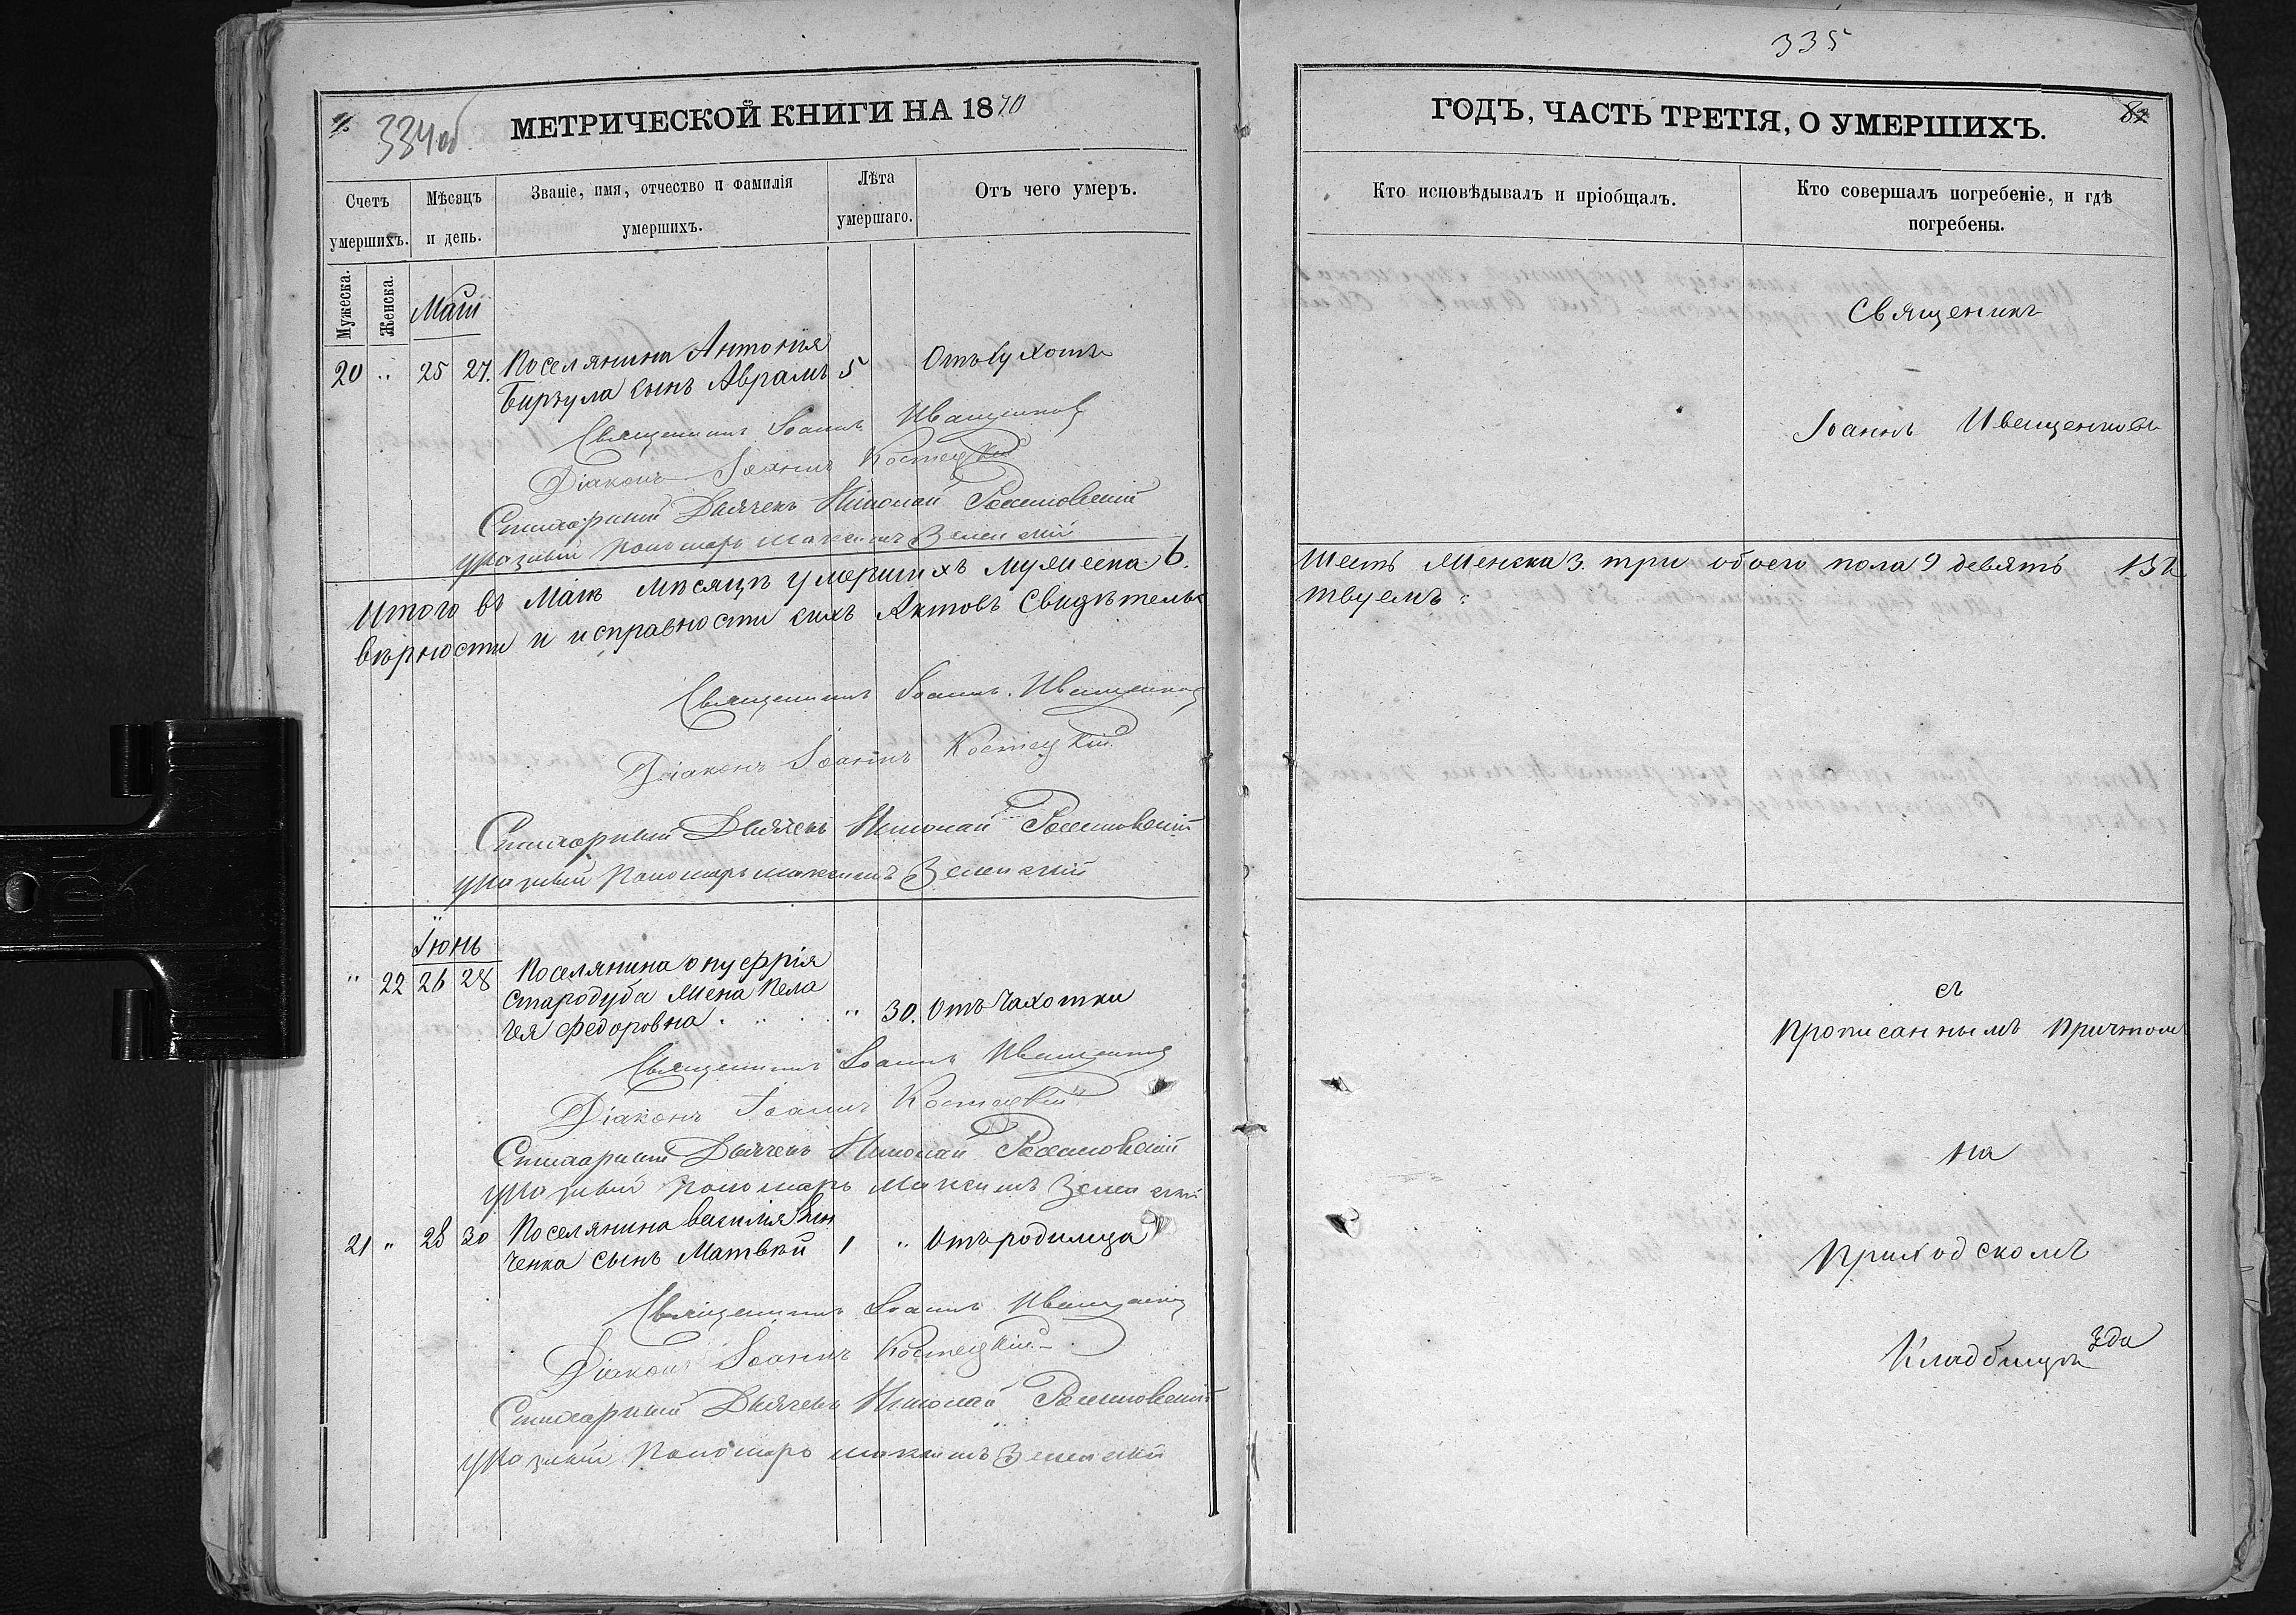 334об
МЕТРИЧЕСКОЙ КНИГИ НА 1870
Счетъ умершихъ.
Мѣсяцъ и день.
Званіе, имя, отчество и фамилія умершихъ.
Лѣта умершаго.
Отъ чего умеръ.
Мужеска.
Женска.
Маій
20 " 25 27. Поселянина Антонія
Бирзула сынъ Аврамъ 5 Отъ сухоты
Священникъ Іоаннъ Иващенковъ
Діаконъ Іоаннъ Костецкій
Стихарный Дьячекъ Николай
указный Пономарь Максимъ Зелинскій
Итого въ Маѣ мѣсяцѣ умершихъ мужеска 6.
вѣрности и исправности сихъ Актовъ Свидѣтельс
Священникъ Іоаннъ Иващенковъ
Діаконъ Іоаннъ Костецкій
Стихарный Дьячекъ Николай
указный Пономарь Максимъ Зелинскій
Іюнь
" 22 26 28 Поселянина Онуфрія
Стародуба жена Пела
гея Федоровна " 30. Отъ Чахотки
Священникъ Іоаннъ Иващенковъ
Діаконъ Іоаннъ Костецкій
Стихарный Дьячекъ Николай
указный Пономарь Максимъ Зелинскій
21 " 28 30 Поселянина Василія
ченка сынъ Матвѣй 1 " Отъ родимца
Священникъ Іоаннъ Иващенковъ
Діаконъ Іоаннъ Костецкій
Стихарный Дьячекъ Николай
указный Пономарь Максимъ Зелинскій
335
ГОДЪ, ЧАСТЬ ТРЕТІЯ, О УМЕРШИХЪ.
Кто исповѣдывалъ и пріобщалъ.
Кто совершалъ погребеніе, и гдѣ погребены.
Священикъ
Іоаннъ Иващенковъ
Шесть женска 3. три обоего пола 9 девять
твуемъ:
съ
прописаннымъ причтом
на
приходскомъ
Кладбищѣ